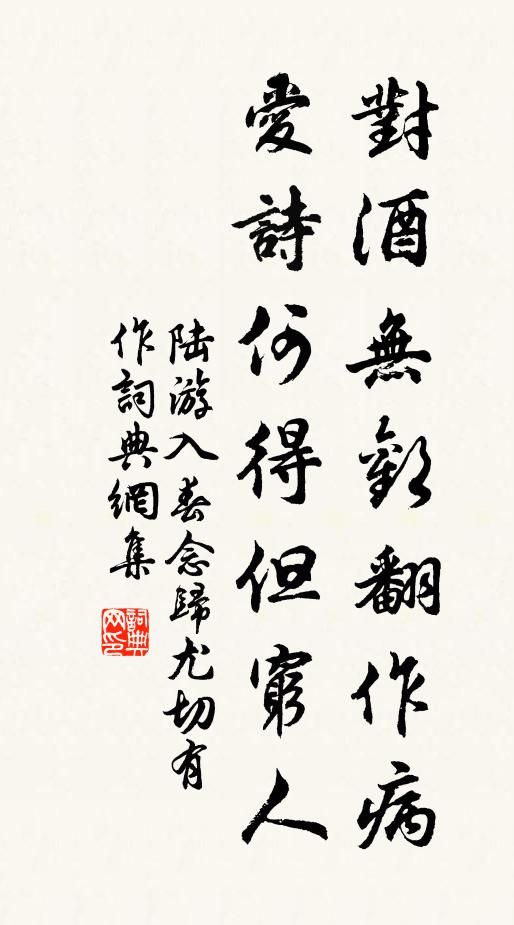 對酒無歡翻作病
愛詩何得但窮人
陸游入春念歸尤切有
作詞典網集
詞典
网印